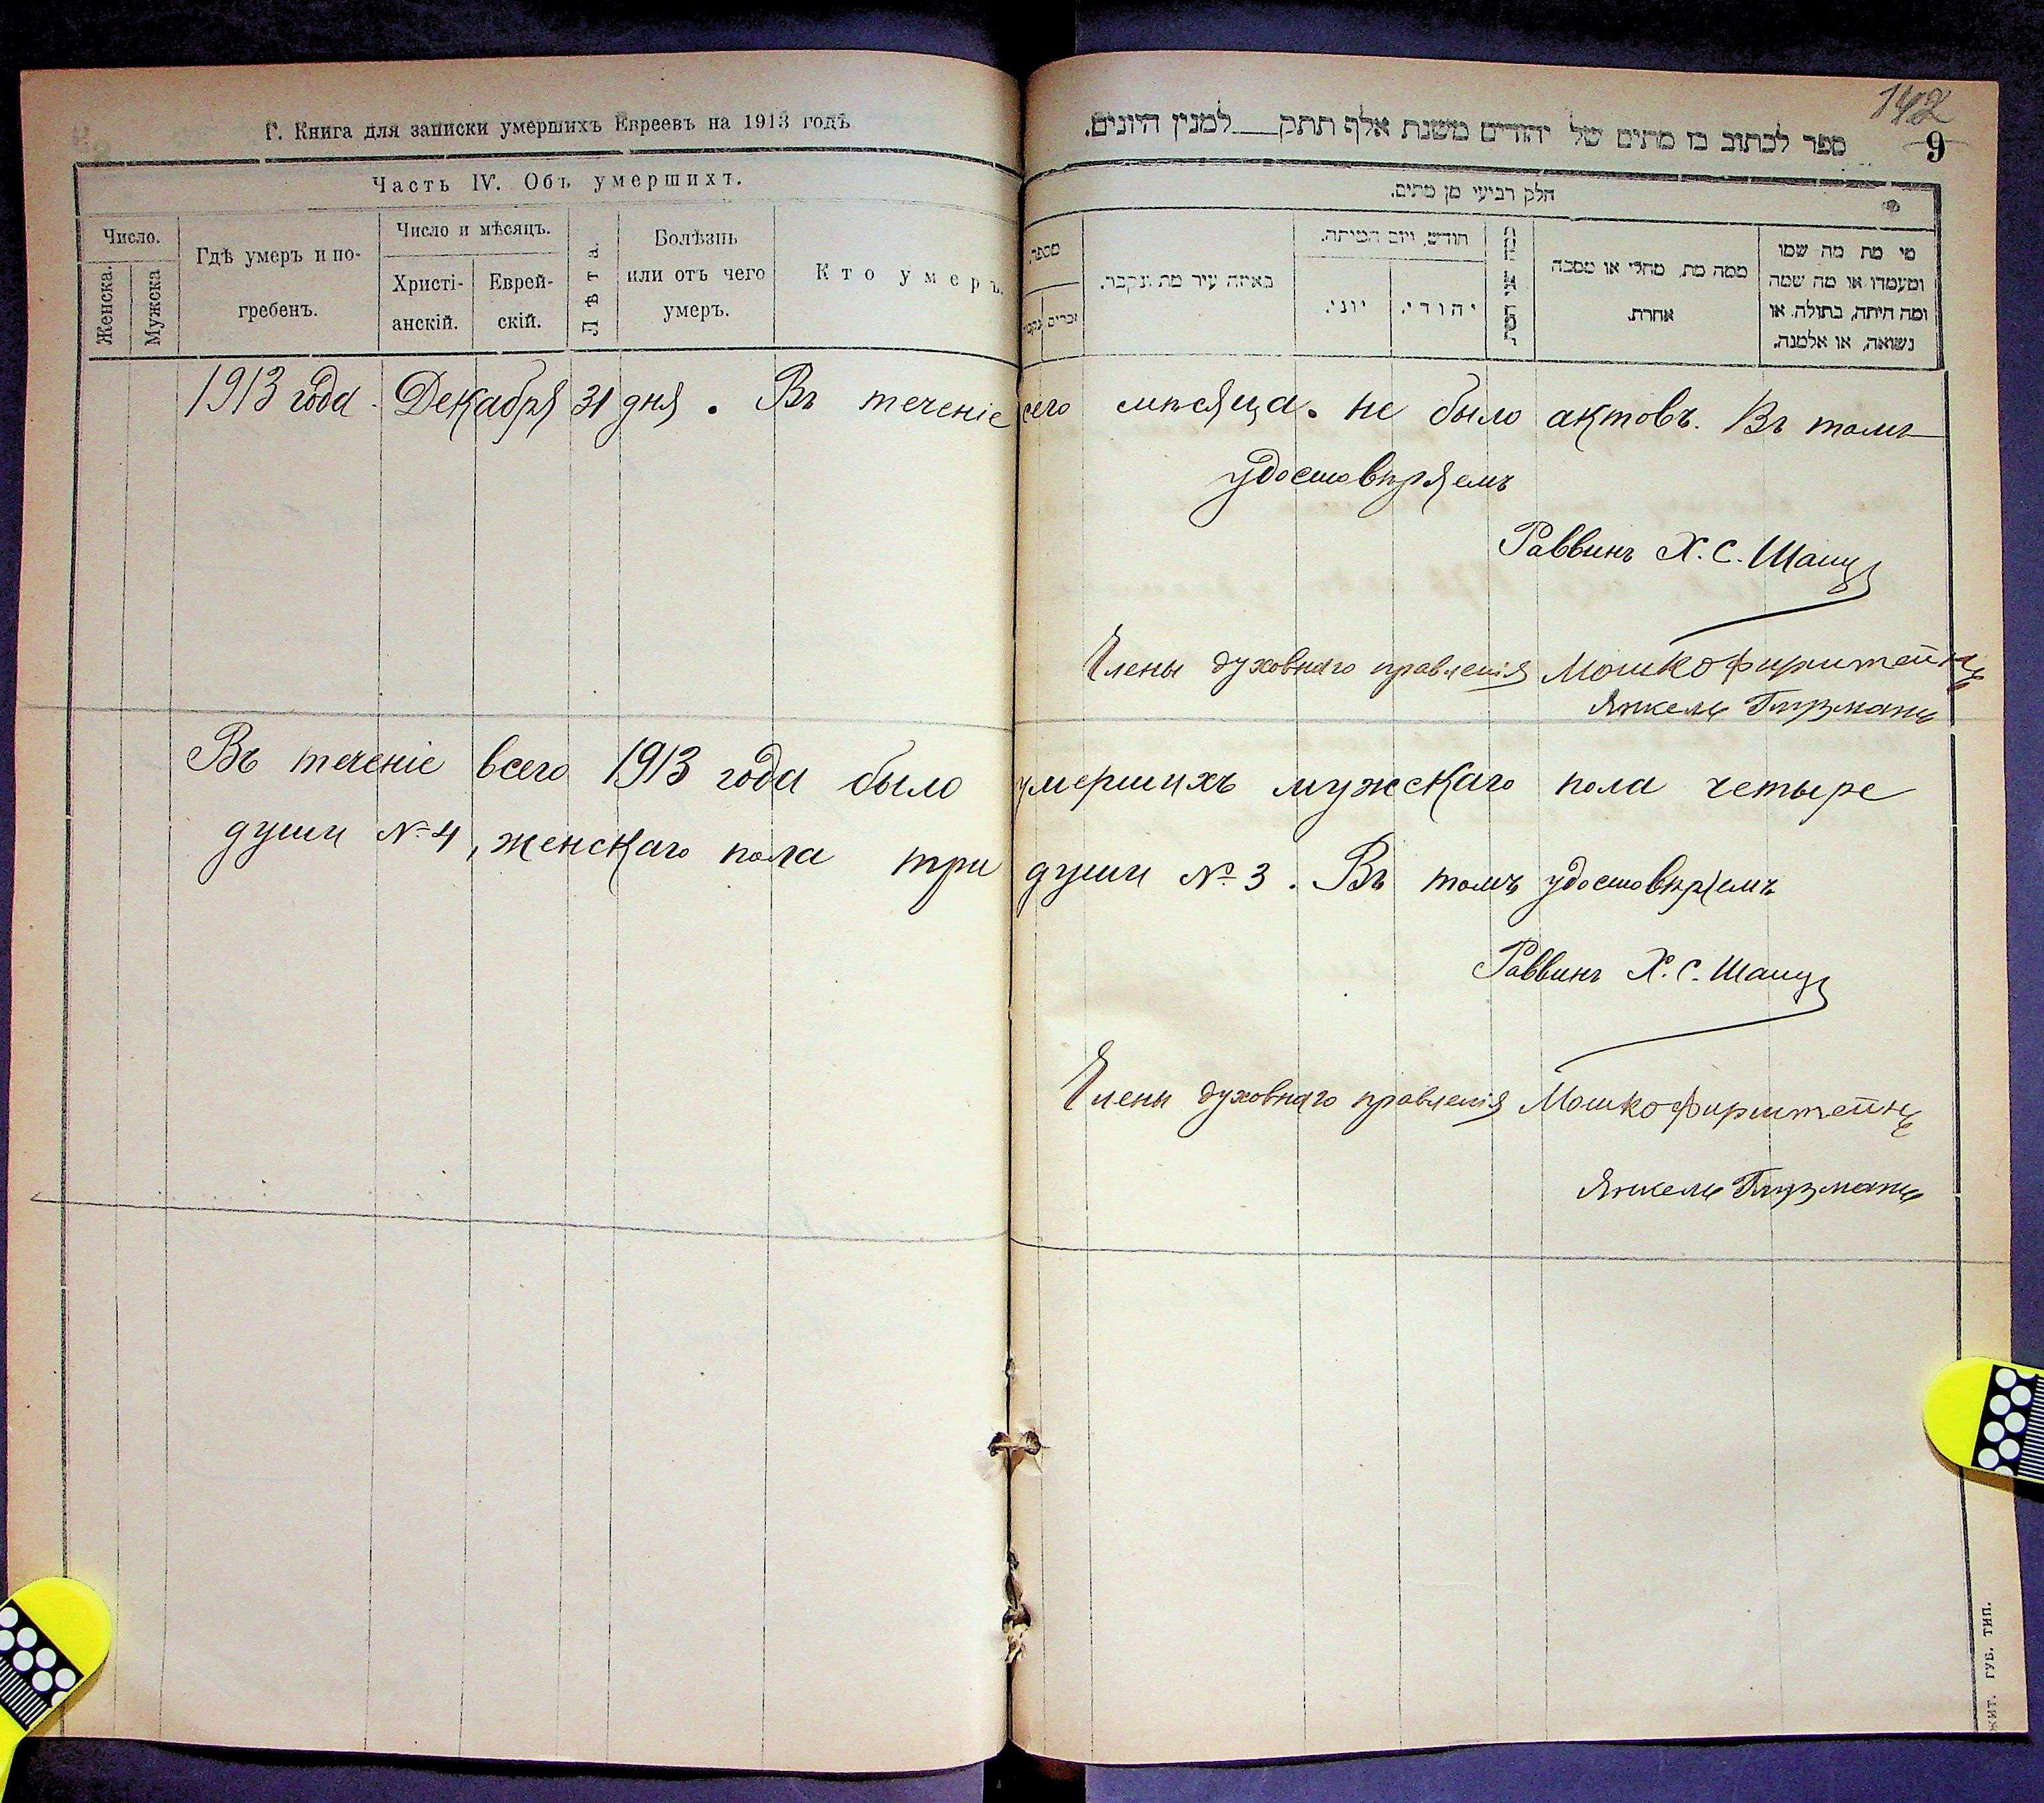 Г. Книга для записки умершихъ Евреевъ на 1913 годъ
Часть IV. Объ умершихъ.
Число.
Женска.
Мужска
Гдѣ умеръ и по-
гребенъ.
Число и мѣсяцъ.
Христі-
анскій.
Еврей-
скій.
Лѣта.
Болѣзнь
или отъ чего
умеръ.
Кто умеръ.
142
9
ספר לכתוב בו מתים של יהודים משנת אלף תתק___למנין היונים.
חלק רביעי מן מתים.
מספר
זכרים
באיזה עיר מת ונקבר.
חודש, ויום המיתה.
יוני.
יהודי.
ממה מת, מחלי או מסבה
אחרת.
מי מת מה שמו
ומעמדו או מה שמה
ומה היתה, בתולה, או
נשואה, או אלמנה.
1913 года Декабря 31 дня. Въ теченіе сего мѣсяца не было актовъ. Въ томъ
удостовѣряемъ
Раввинъ Х. С. Шацъ
Члены духовнаго правленія Мошко Фирштейнъ
Янкель
Въ теченіе всего 1913 года было умершихъ мужскаго пола четыре
души № 4, женскаго пола три души № 3. Въ томъ удостовѣряемъ
Раввинъ Х. С. Шацъ
Члены духовнаго правленія Мошко Фирштейнъ
Янкель
ЖИТ. ГУБ. ТИП.